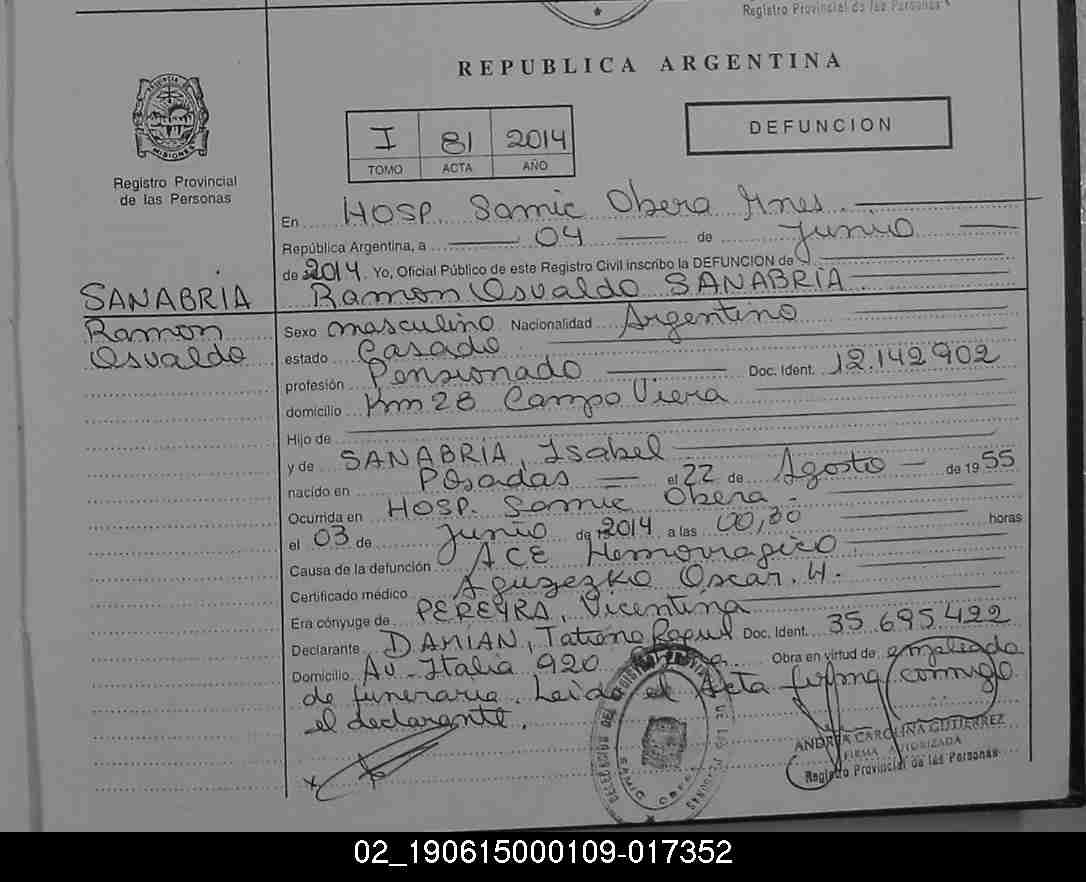 Registro Provincial de las Personas
REPUBLICA ARGENTINA
PROVINCIA
MISIONES
Registro Provincial
de las Personas
I 81 2014
TOMO ACTA AÑO
DEFUNCION
En HOSP. Samic Obera Mnes.
República Argentina, a 04 de Junio
de 2014. Yo, Oficial Público de este Registro Civil inscribo la DEFUNCION de
Ramon Osvaldo SANABRIA
SANABRIA
Ramon
Osvaldo
Sexo masculino Nacionalidad Argentino
estado Casado
profesión Pensionado Doc. Ident. 12.142.902
domicilio Km 28 Campo Viera
Hijo de
y de SANABRIA, Isabel
nacido en Posadas el 22 de Agosto de 1955
Ocurrida en HOSP. Samic Obera -
el 03 de Junio de 2014 a las 00,30 horas
Causa de la defunción ACE Hemorragico
Certificado médico Aguzezko Oscar. H.
Era cónyuge de PEREYRA, Vicentina
Declarante DAMIAN, Tatiana Raquel Doc. Ident. 35.695.422
Domicilio Av. Italia 920 Obra en virtud de empleada
de funeraria. Leida el Acta firma conmigo
el declarante.
ANDREA CAROLINA GUTIERREZ
FIRMA AUTORIZADA
Registro Provincial de las Personas
SAMIC OBERA
02_190615000109-017352